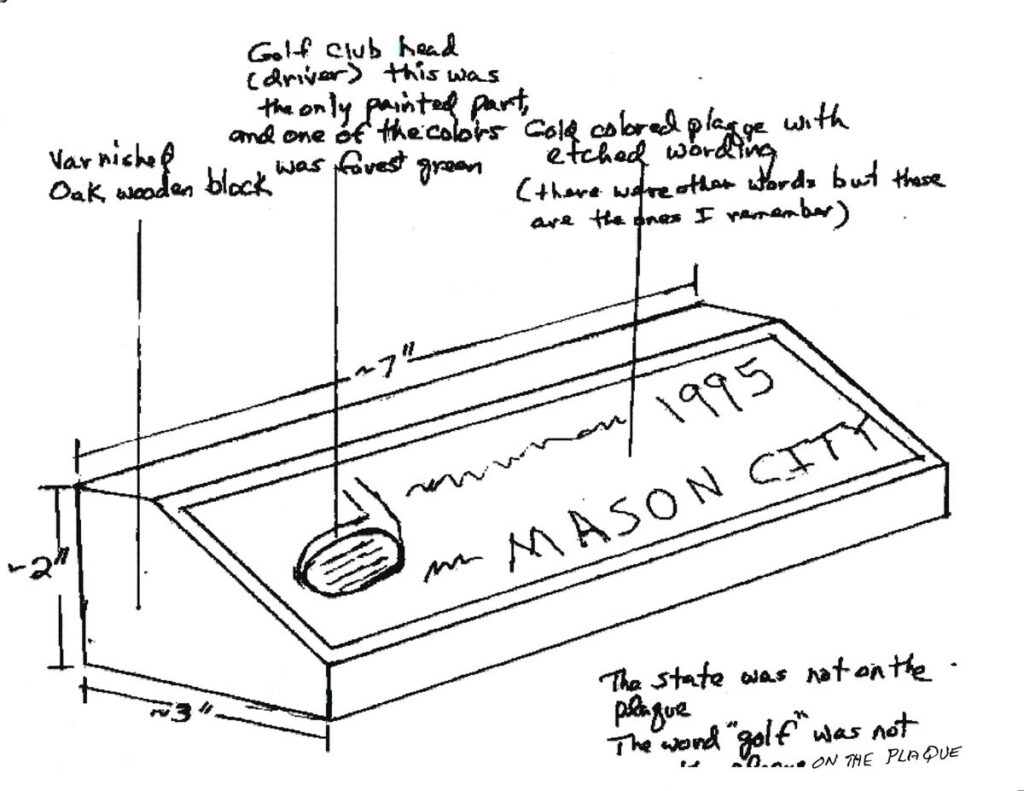 Golf club head
(driver) this was
the only painted part,
and one of the colors
was forest green
Varnished
Oak wooden block
Gold colored plaque with
etched wording
(there were other words but these
are the ones I remember)
~7"
1995
MASON CITY
~2"
~3"
The state was not on the
plaque
The word "golf" was not
ON THE PLAQUE